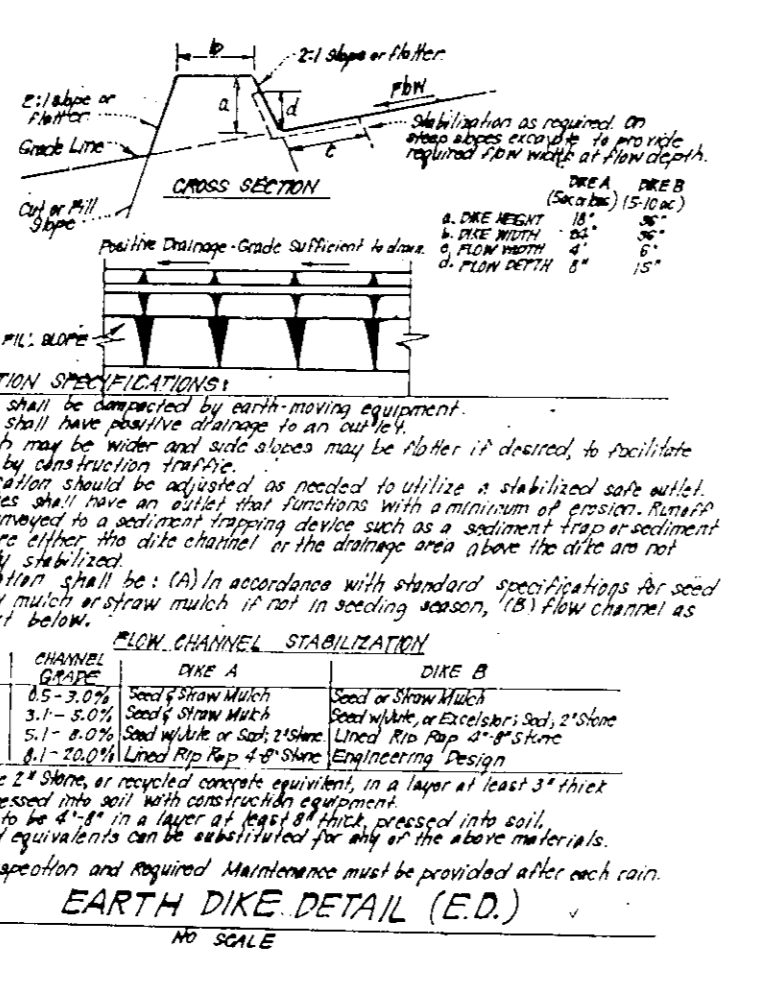 b
2:1 slope or flatter
Flow
2:1 slope or
flatter
a
d
Stabilization as required. On
steep slopes excavate to provide
required flow width at flow depth.
Grade Line
c
CROSS SECTION
Cut or Fill
Slope
DIKE A DIKE B
(5 ac or less) (5-10 ac)
a. DIKE HEIGHT 18" 36"
b. DIKE WIDTH 24" 36"
c. FLOW WIDTH 4' 6'
d. FLOW DEPTH 8" 15"
Positive Drainage - Grade Sufficient to drain
FILL SLOPE
TION SPECIFICATIONS:
shall be compacted by earth-moving equipment.
shall have positive drainage to an outlet.
h may be wider and side slopes may be flatter if desired, to facilitate
by construction traffic.
cation should be adjusted as needed to utilize a stabilized safe outlet.
es shall have an outlet that functions with a minimum of erosion. Runoff
nveyed to a sediment trapping device such as a sediment trap or sediment
re either the dike channel or the drainage area above the dike are not
y stabilized.
ation shall be: (A) In accordance with standard specifications for seed
mulch or straw mulch if not in seeding season, (B) flow channel as
t below.
FLOW CHANNEL STABILIZATION
CHANNEL
GRADE DIKE A DIKE B
0.5 - 3.0% Seed & Straw Mulch Seed or Straw Mulch
3.1 - 5.0% Seed & Straw Mulch Seed w/Jute, or Excelsior; Sod; 2" Stone
5.1 - 8.0% Seed w/Jute or Sod; 2" Stone Lined Rip Rap 4"-8" Stone
8.1 - 20.0% Lined Rip Rap 4-8" Stone Engineering Design
e 2" Stone, or recycled concrete equivilent, in a layer at least 3" thick
essed into soil with construction equipment.
to be 4"-8" in a layer at least 8" thick, pressed into soil.
d equivalents can be substituted for any of the above materials.
spection and Required Maintenance must be provided after each rain.
EARTH DIKE DETAIL (E.D.)
NO SCALE